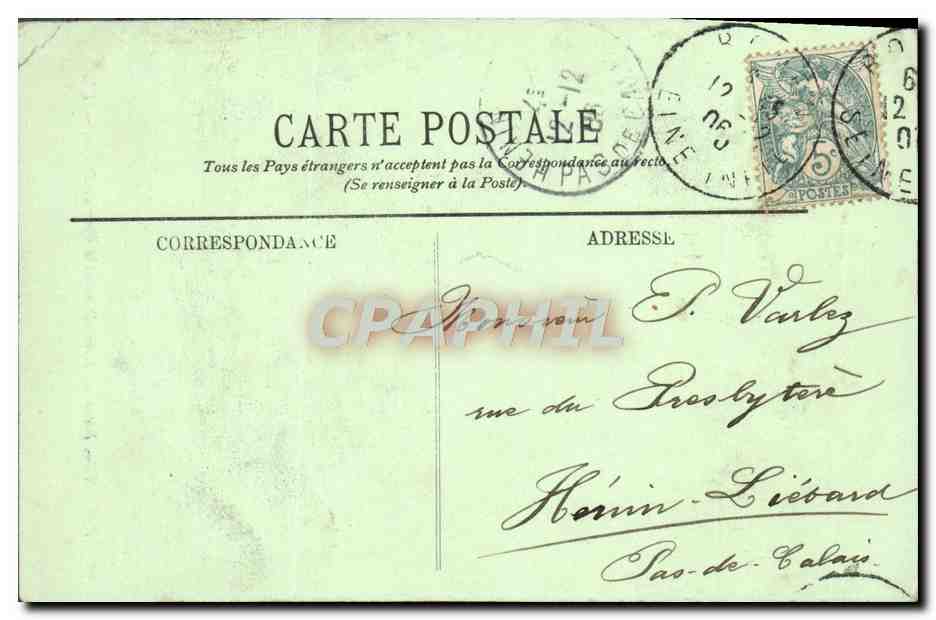 CARTE POSTALE
Tous les Pays étrangers n'acceptent pas la Correspondance au recto.
(Se renseigner à la Poste).
PAS DE CAL
12
SEINE
5c
POSTES
CORRESPONDANCE
ADRESSE
CPAPHIL
Monsieur P. Varlez
rue du Presbytère
Hénin-Liétard
Pas-de-Calais